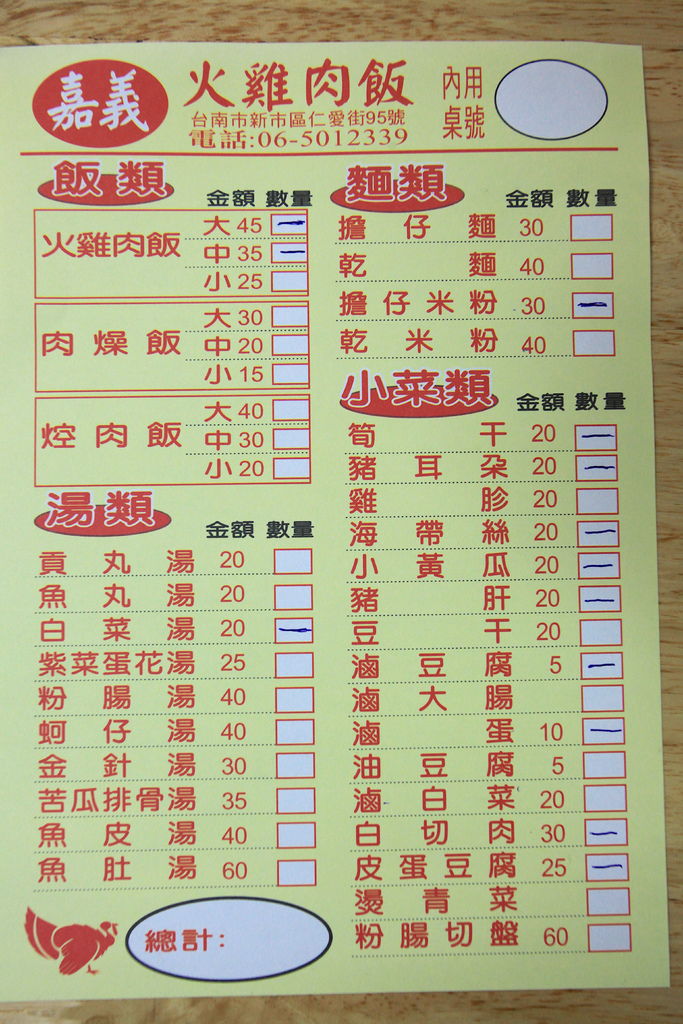 嘉義 火雞肉飯
台南市新市區仁愛街95號
電話:06-5012339
內用
桌號
飯類
金額 數量
火雞肉飯 大 45 一
中 35 一
小 25
肉燥飯 大 30
中 20
小 15
焢肉飯 大 40
中 30
小 20
湯類
金額 數量
貢丸湯 20
魚丸湯 20
白菜湯 20 一
紫菜蛋花湯 25
粉腸湯 40
蚵仔湯 40
金針湯 30
苦瓜排骨湯 35
魚皮湯 40
魚肚湯 60
總計:
麵類
金額 數量
擔仔麵 30
乾麵 40
擔仔米粉 30 一
乾米粉 40
小菜類
金額 數量
筍干 20 一
豬耳朵 20 一
雞胗 20
海帶絲 20 一
小黃瓜 20 一
豬肝 20 一
豆干 20
滷豆腐 5 一
滷大腸
滷蛋 10 一
油豆腐 5
滷白菜 20
白切肉 30 一
皮蛋豆腐 25 一
燙青菜
粉腸切盤 60